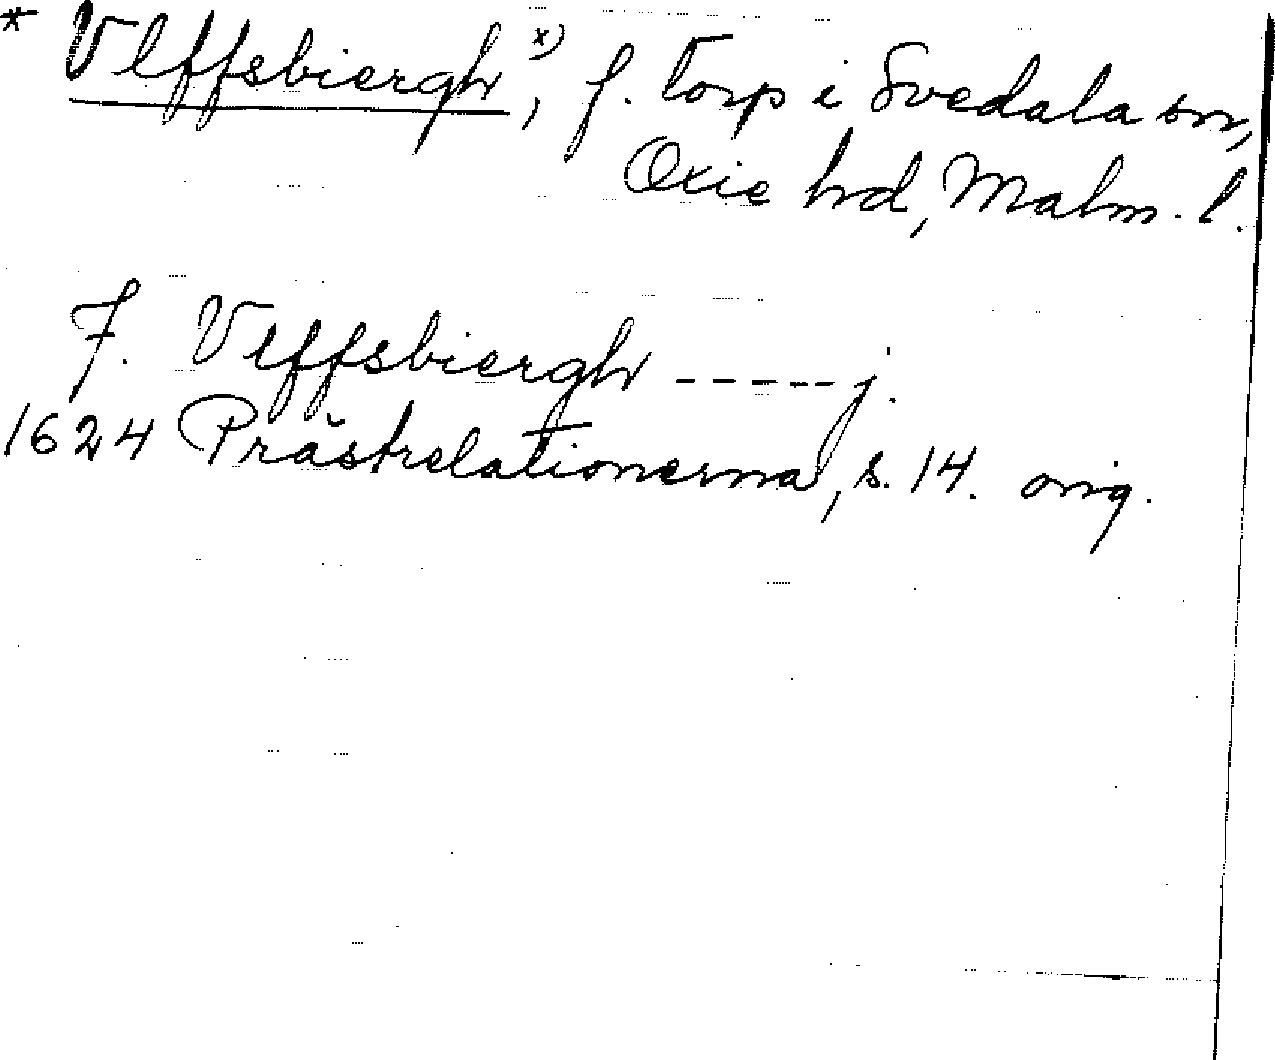 * Vlffsbiergh x), f. torp i Svedala sn,
Oxie hd, Malm. l.
J. Vlffsbiergh ----- j.
1624 Prästrelationerna, s. 14. orig.